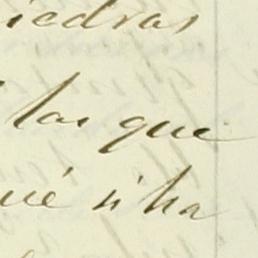 iedras
las que
ué si ha